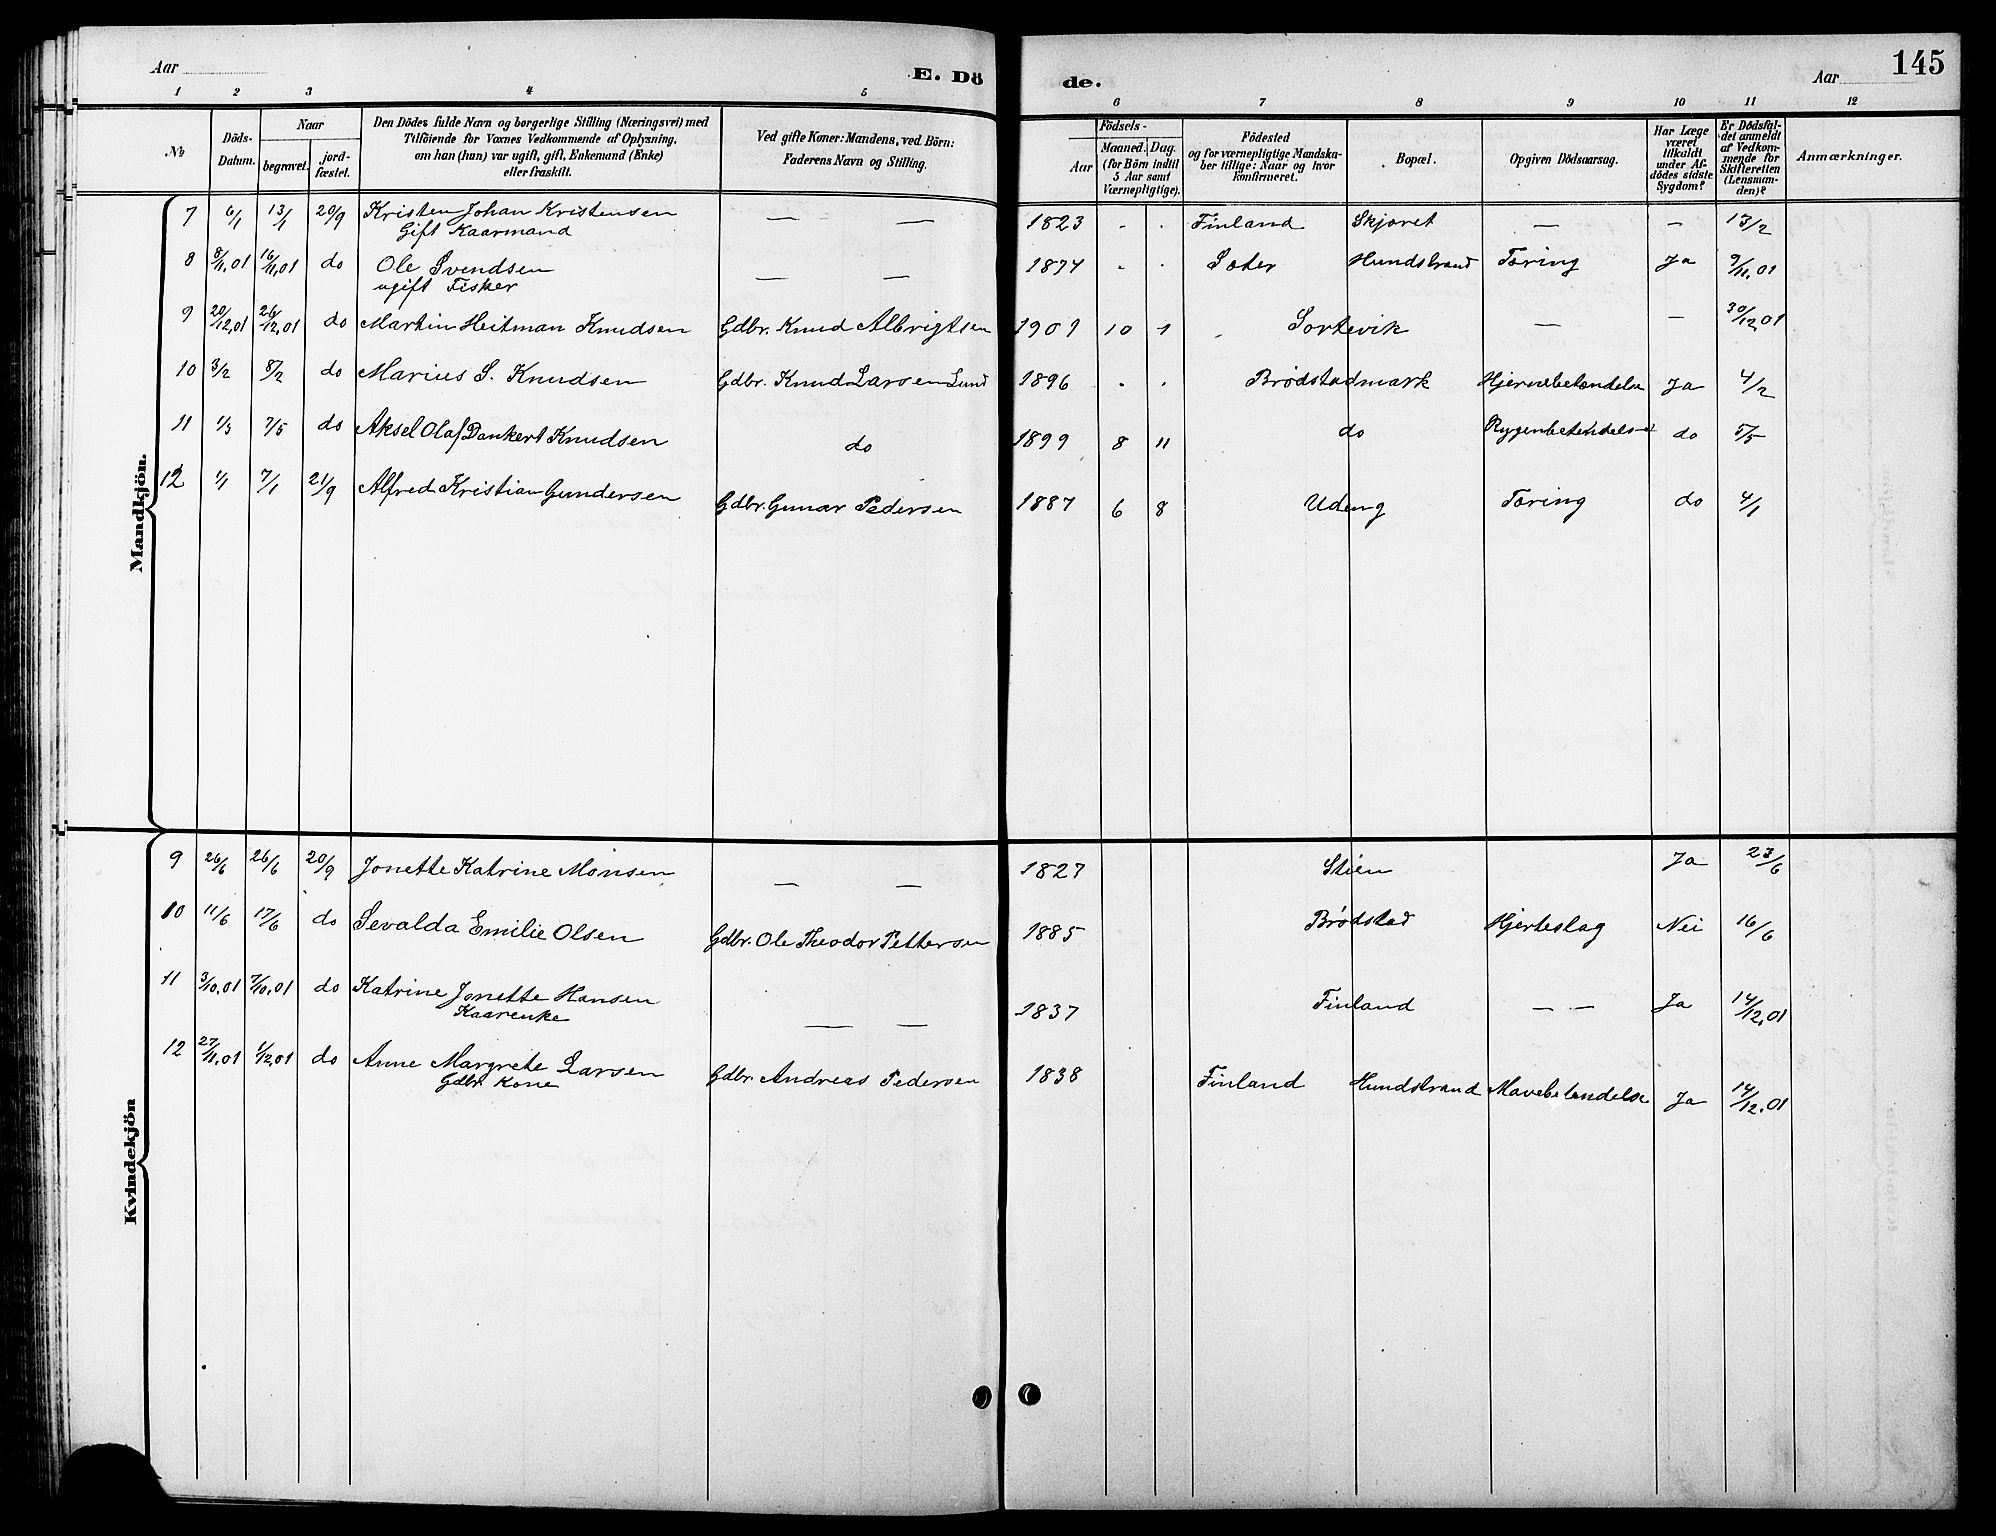 Aar
E. Dö
de.
Aar
145
1 2 3 4 5 6 7 8 9 10 11 12
№
Döds-
Datum.
Naar
begravet.
jord-
fæstet.
Den Dödes fulde Navn og borgerlige Stilling (Næringsvei) med
Tilföiende for Voxnes Vedkommende af Oplysning,
om han (hun) var ugift, gift, Enkemand (Enke)
eller fraskilt.
Ved gifte Koner: Mandens, ved Börn:
Faderens Navn og Stilling.
Födsels-
Aar
Maaned. Dag.
(for Börn indtil
5 Aar samt
Værnepligtige).
Födested
og for værnepligtige Mandska-
ber tillige: Naar og hvor
konfirmeret.
Bopæl.
Opgiven Dödsaarsag.
Har Læge
været
tilkaldt
under Af-
dödes sidste
Sygdom?
Er Dödsfal-
det anmeldt
af Vedkom-
mende for
Skifteretten
(Lensman-
den)?
Anmærkninger.
Mandkjön.
7 6/1 13/1 20/9 Kristen Johan Kristensen — — 1823 - . Finland Skjæret — — 13/2
Gift Kaarmand
8 8/11.01 16/11.01 do Ole Svendsen — — 1874 . . Sæter Hundstrand Tæring Ja 9/11.01
ugift Fisker
9 20/12.01 26/12.01 do Martin Heitman Knudsen Gdbr. Knud Albrigtsen 1901 10 1 Sortevik — — 30/12.01
10 3/2 8/2 do Marius S. Knudsen Gdbr. Knud Larsen Lund 1896 . . Brødstadmark Hjernebetændelse Ja 4/2
11 1/5 7/5 do Aksel Olaf Dankert Knudsen do 1899 8 11 do Rygenbetændelse do 5/5
12 1/1 7/1 21/9 Alfred Kristian Gundersen Gdbr. Gunnar Pedersen 1887 6 8 Udeng Tæring do 4/1
Kvindekjön
9 26/6 26/6 20/9 Jonette Katrine Monsen — — 1827 Stien Ja 23/6
10 11/6 17/6 do Sevalda Emilie Olsen Gdbr. Ole Theodor Pettersen 1885 Brødstad Hjerteslag Nei 16/6
11 3/10.01 7/10.01 do Katrine Jonette Hansen — — 1837 Finland — — Ja 14/12.01
Kaarenke
12 27/11.01 1/12.01 do Anne Margrete Larsen Gdbr. Andreas Pedersen 1838 Finland Hundstrand Mavebetændelse Ja 14/12.01
Gdbr. Kone